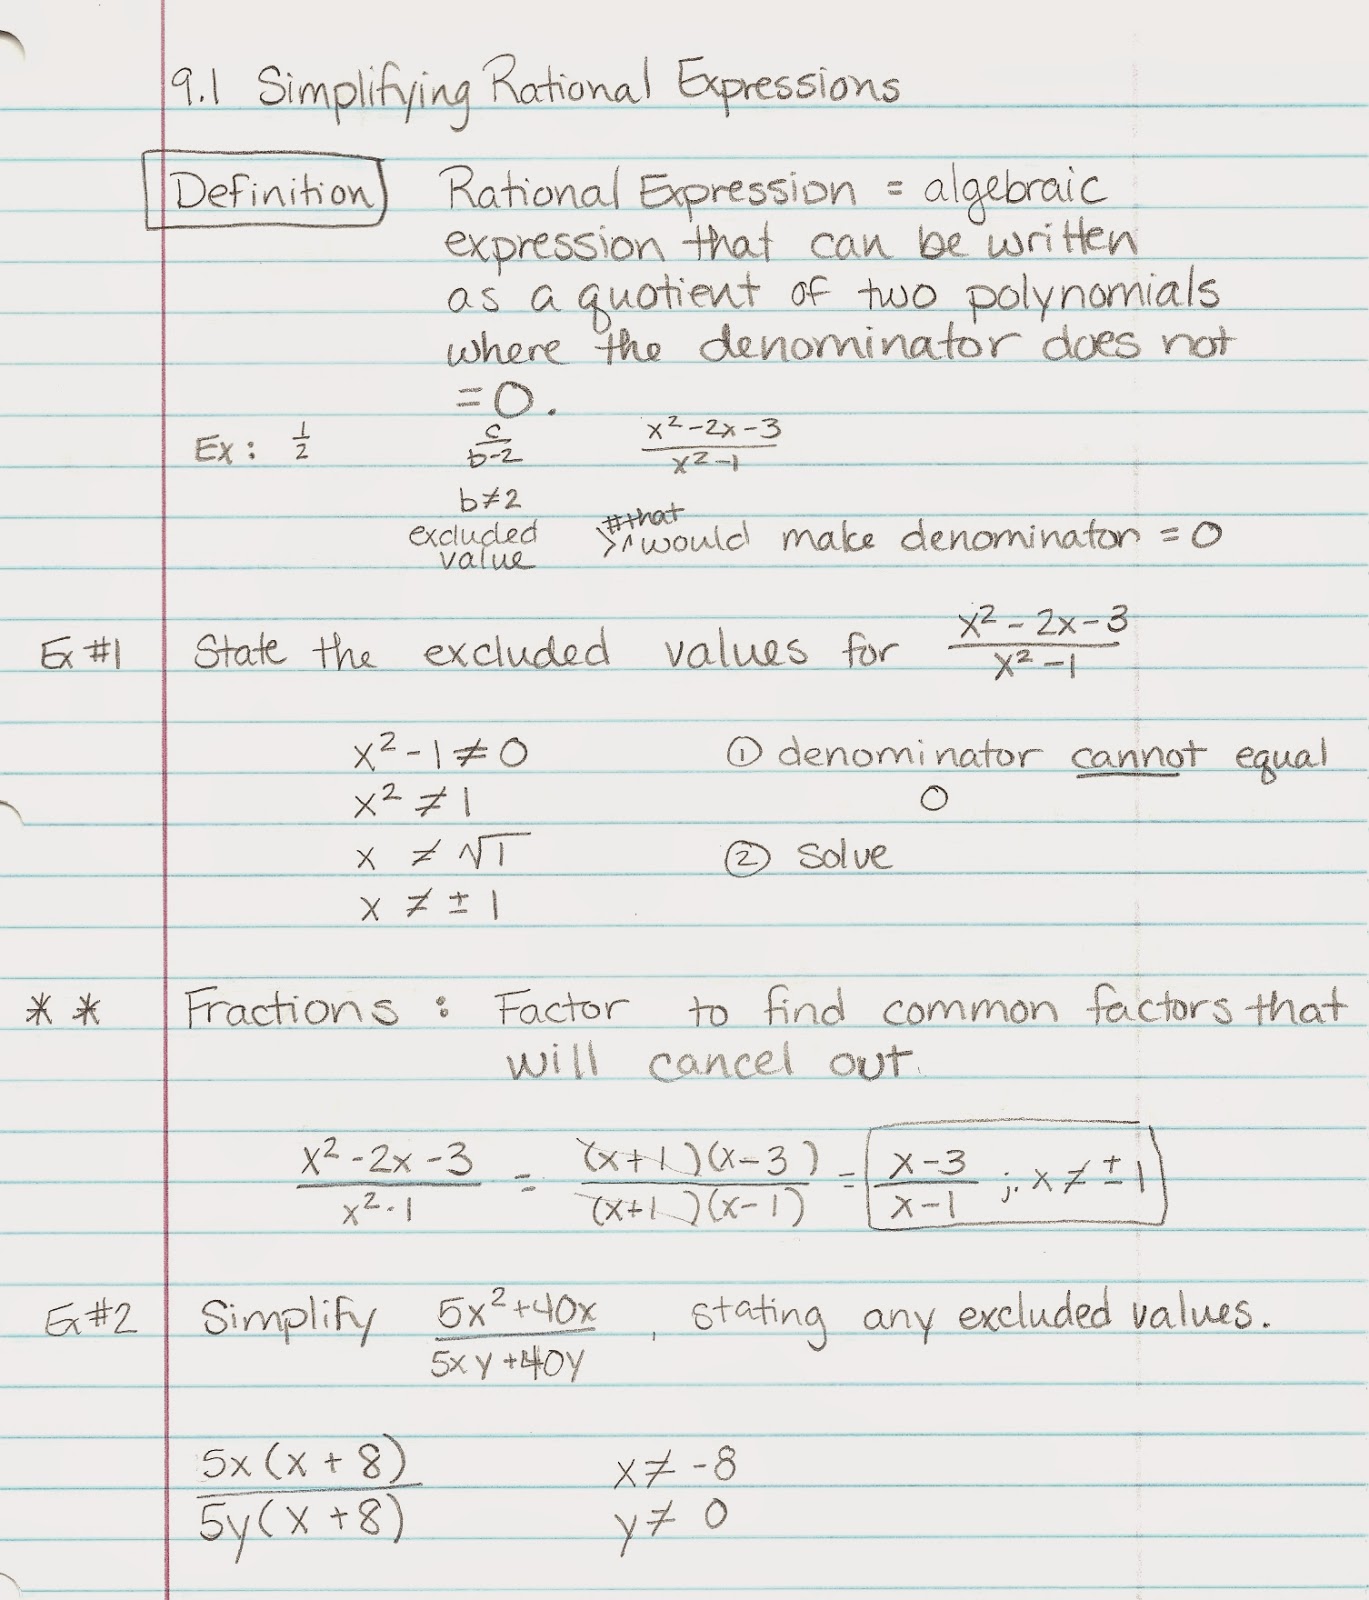 9.1 Simplifying Rational Expressions
Definition Rational Expression = algebraic
expression that can be written
as a quotient of two polynomials
where the denominator does not
= 0.
Ex: 1/2 c/(b-2) (x²-2x-3)/(x²-1)
b≠2
excluded value > ^ # that would make denominator = 0
Ex #1 State the excluded values for (x²-2x-3)/(x²-1)
x²-1≠0 ① denominator cannot equal
x² ≠ 1 0
x ≠ √1 ② solve
x ≠ ±1
** Fractions: Factor to find common factors that
will cancel out.
(x²-2x-3)/(x²-1) = (x+1)(x-3)/(x+1)(x-1) = (x-3)/(x-1) ; x ≠ ±1
Ex #2 Simplify (5x²+40x)/(5xy+40y), stating any excluded values.
5x(x+8)/5y(x+8) x≠-8
y≠0